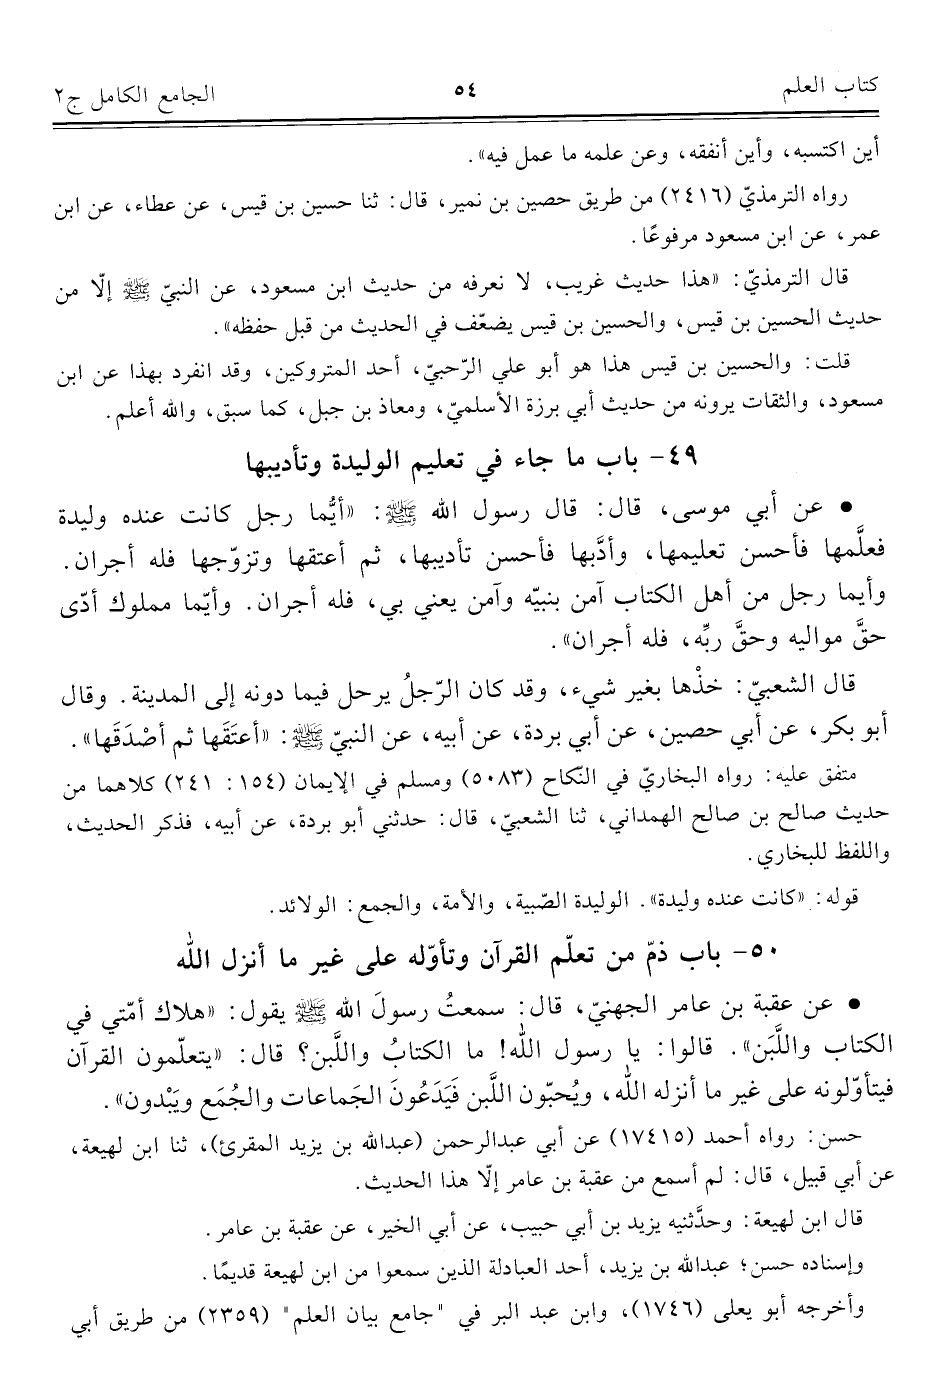 كتاب العلم ٥٤ الجامع الكامل ج٢
أين اكتسبه، وأين أنفقه، وعن علمه ما عمل فيه».
رواه الترمذيّ (٢٤١٦) من طريق حصين بن نمير، قال: ثنا حسين بن قيس، عن عطاء، عن ابن
عمر، عن ابن مسعود مرفوعًا.
قال الترمذيّ: «هذا حديث غريب، لا نعرفه من حديث ابن مسعود، عن النبيّ ﷺ إلّا من
حديث الحسين بن قيس، والحسين بن قيس يضعّف في الحديث من قبل حفظه».
قلت: والحسين بن قيس هذا هو أبو علي الرّحبيّ، أحد المتروكين، وقد انفرد بهذا عن ابن
مسعود، والثقات يرونه من حديث أبي برزة الأسلميّ، ومعاذ بن جبل، كما سبق، والله أعلم.
٤٩- باب ما جاء في تعليم الوليدة وتأديبها
• عن أبي موسى، قال: قال رسول الله ﷺ: «أيُّما رجل كانت عنده وليدة
فعلَّمها فأحسن تعليمها، وأدَّبها فأحسن تأديبها، ثم أعتقها وتزوّجها فله أجران.
وأيما رجل من أهل الكتاب آمن بنبيّه وآمن يعني بي، فله أجران. وأيّما مملوك أدّى
حقَّ مواليه وحقَّ ربِّه، فله أجران».
قال الشعبيّ: خذْها بغير شيء، وقد كان الرّجلُ يرحل فيما دونه إلى المدينة. وقال
أبو بكر، عن أبي حصين، عن أبي بردة، عن أبيه، عن النبيّ ﷺ: «أعتَقَها ثم أصْدَقَها».
متفق عليه: رواه البخاريّ في النّكاح (٥٠٨٣) ومسلم في الإيمان (١٥٤: ٢٤١) كلاهما من
حديث صالح بن صالح الهمداني، ثنا الشعبيّ، قال: حدثني أبو بردة، عن أبيه، فذكر الحديث،
واللفظ للبخاري.
قوله: «كانت عنده وليدة». الوليدة الصّبية، والأمة، والجمع: الولائد.
٥٠- باب ذمّ من تعلّم القرآن وتأوّله على غير ما أنزل الله
• عن عقبة بن عامر الجهنيّ، قال: سمعتُ رسولَ الله ﷺ يقول: «هلاك أمّتي في
الكتاب واللَّبَن». قالوا: يا رسول الله! ما الكتابُ واللَّبن؟ قال: «يتعلّمون القرآن
فيتأوّلونه على غير ما أنزله الله، ويُحبّون اللَّبن فَيَدَعُونَ الجَماعات والجُمَع ويَبْدون».
حسن: رواه أحمد (١٧٤١٥) عن أبي عبدالرحمن (عبدالله بن يزيد المقرئ)، ثنا ابن لهيعة،
عن أبي قبيل، قال: لم أسمع من عقبة بن عامر إلّا هذا الحديث.
قال ابن لهيعة: وحدَّثنيه يزيد بن أبي حبيب، عن أبي الخير، عن عقبة بن عامر.
وإسناده حسن؛ عبدالله بن يزيد، أحد العبادلة الذين سمعوا من ابن لهيعة قديمًا.
وأخرجه أبو يعلى (١٧٤٦)، وابن عبد البر في "جامع بيان العلم" (٢٣٥٩) من طريق أبي